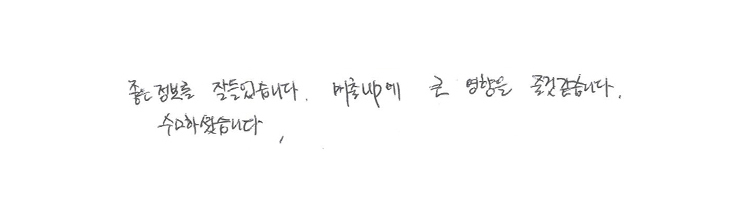 좋은 정보를 잘들었습니다. 매출up에 큰 영향을 줄것같습니다.
수고하셨습니다.